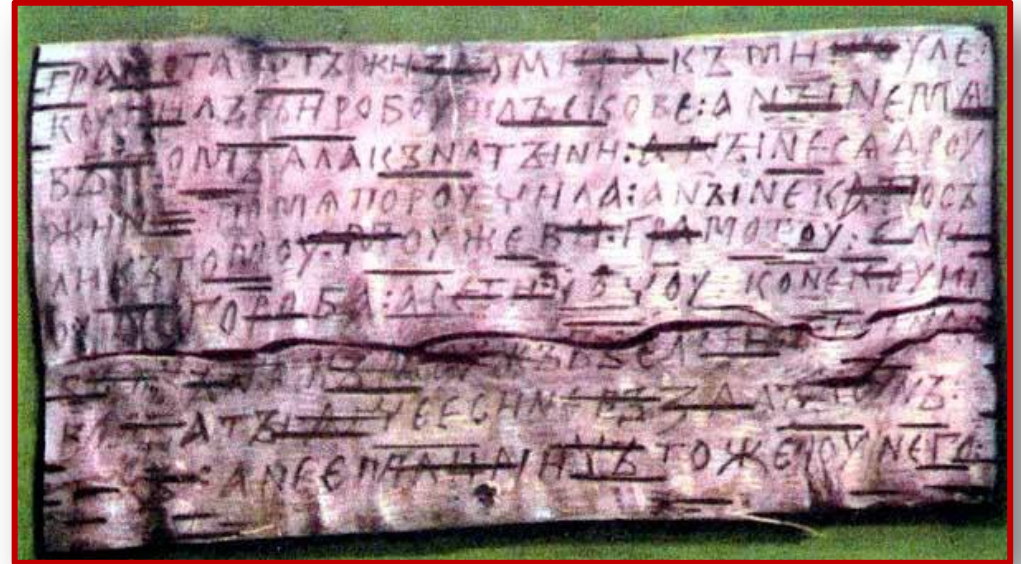 ГРАМОТА ѾТЪ ЖИЗНОМИРА КЪ МИКОУЛЕ:
КОУПИЛЪ ЕСИ РОБОУ ПЛЪСКОВЕ: А НЫНЕ МѦ
ВЪ ТОМЪ ѦЛА КЪНѦГЫНИ: А НЫНЕ СѦ ДРОУ
ЖИНА ПО МѦ ПОРОУЧИЛА: А НЫНЕ КА ПОСЪ
ЛИ КЪ ТОМОУ МОУЖЕВИ: ГРАМОТОУ: ЕЛИ
ОУ НЕГО РОБА: А СЕ ТИ ХОЧОУ КОНЕ КОУПИ
КЪНѦЖЪ МОУЖЪ ВЪСАДИ
А ТЫ АТЧЕ ЕСИ НЕ ВЪЗАЛЪ КОУНЪ:
ТЕХЪ: А НЕ ЕМЛИ НИЧЪТОЖЕ ОУ НЕГО: